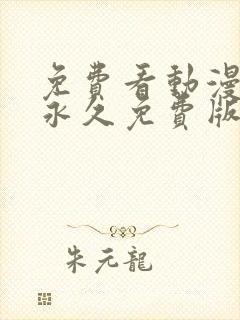 免費看動漫
永久免費版
朱元龍